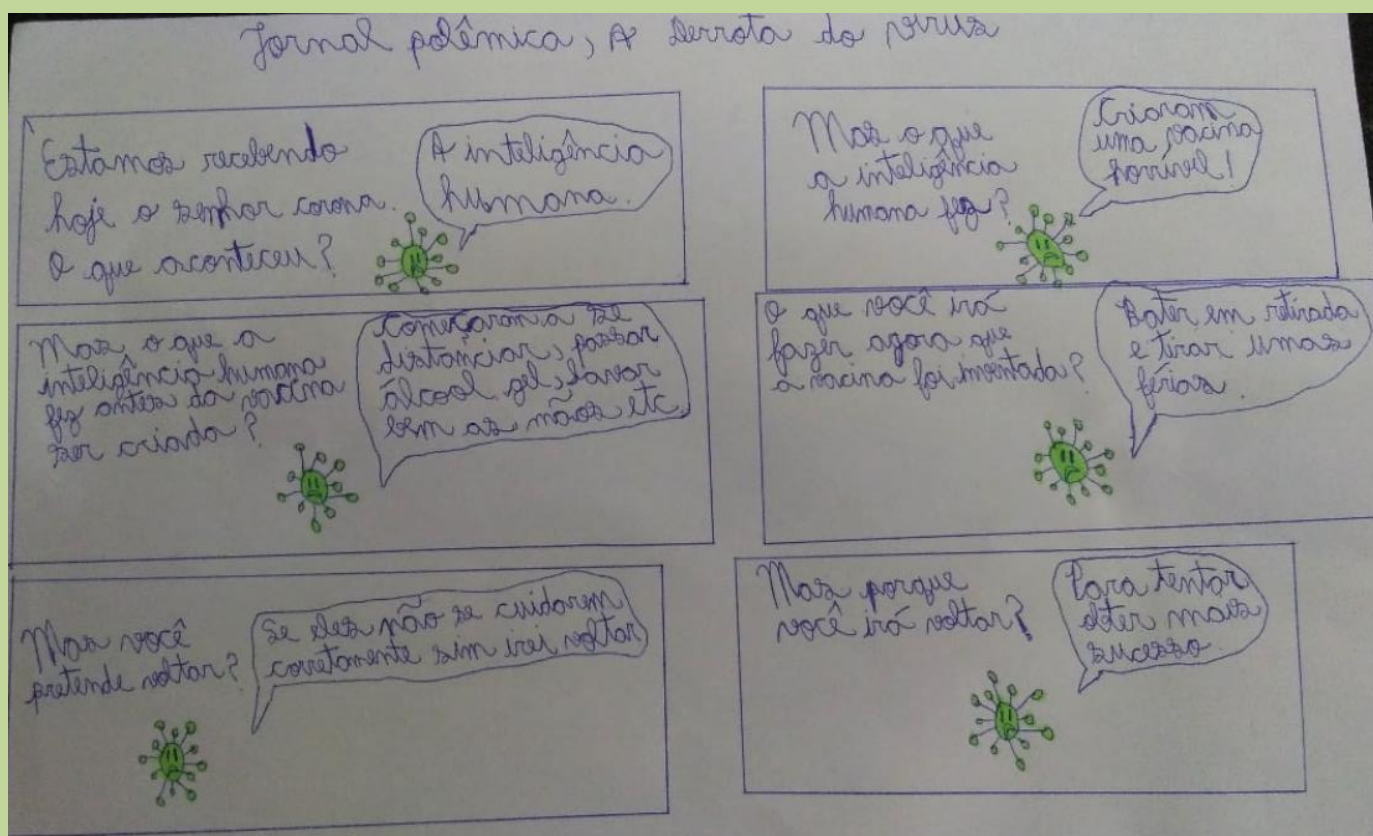 Jornal polêmica, A derrota do vírus
Estamos recebendo
hoje o senhor corona.
O que aconteceu?
A inteligência
humana.
Mas o que
a inteligência
humana fez?
Criaram
uma vacina
horrível!
Mas o que a
inteligência humana
fez antes da vacina
ser criada?
Começaram a se
distanciar, passar
álcool gel, lavar
bem as mãos etc.
O que você irá
fazer agora que
a vacina foi inventada?
Bater em retirada
e tirar umas
férias.
Mas você
pretende voltar?
Se eles não se cuidarem
corretamente sim irei voltar
Mas porque
você irá voltar?
Para tentar
obter mais
sucesso.